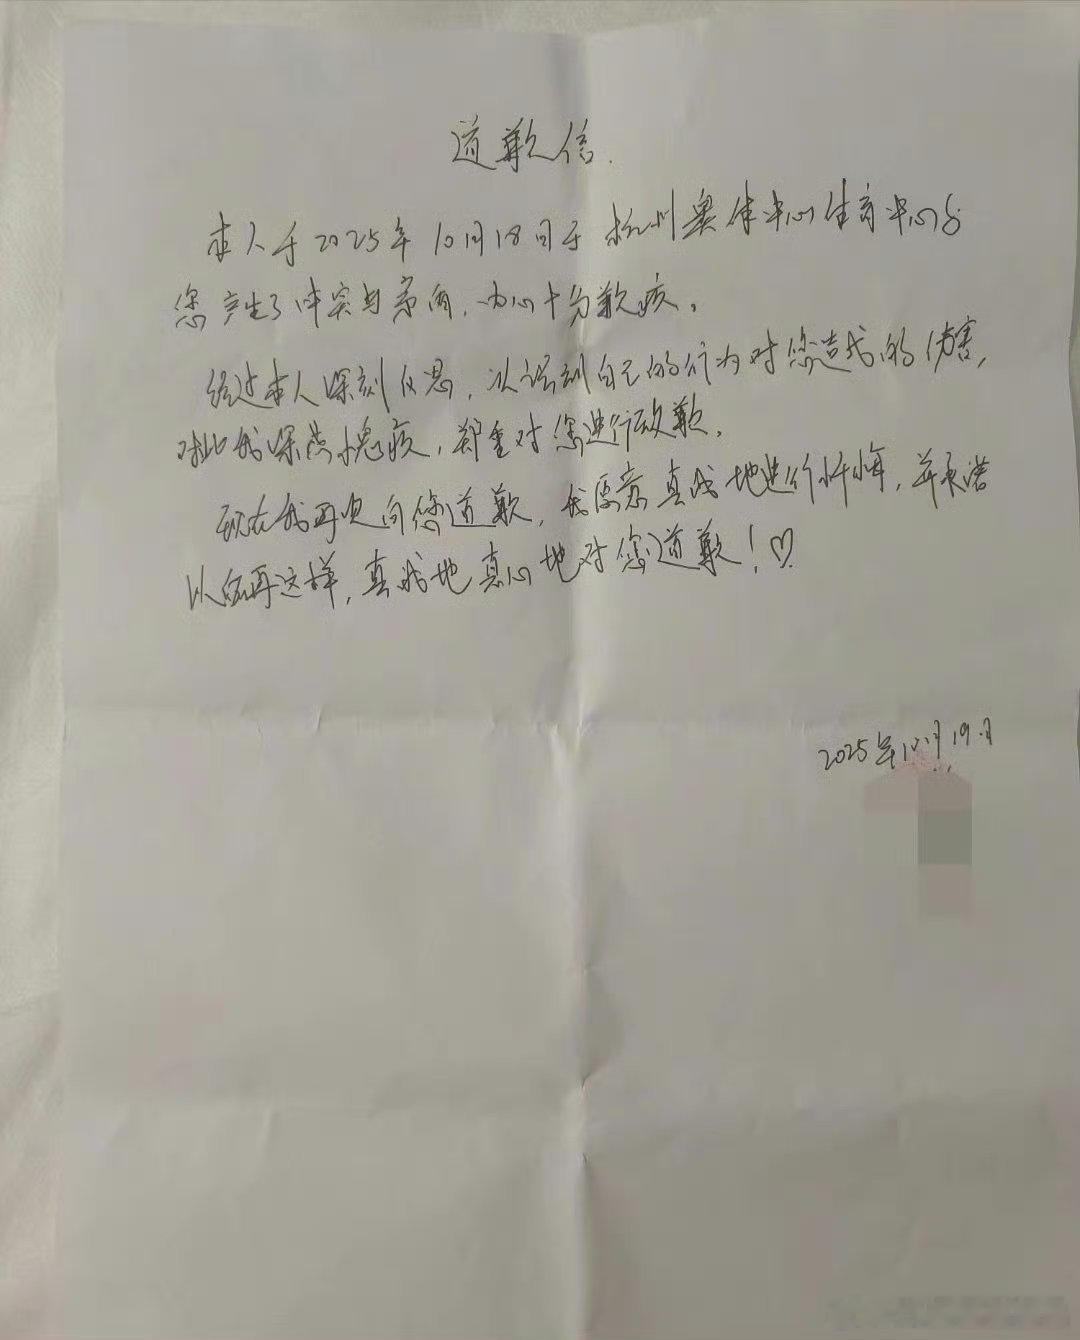 道歉信.
本人于2025年10月18日于杭州奥体中心体育中心与
您产生了冲突与矛盾,内心十分歉疚。
经过本人深刻反思,认识到自己的行为对您造成的伤害,
对此我深感愧疚,郑重对您进行致歉。
现在我再次向您道歉,我愿意真诚地进行忏悔,并承诺
以后再这样,真诚地真心地对您道歉!♡
2025年10月19日